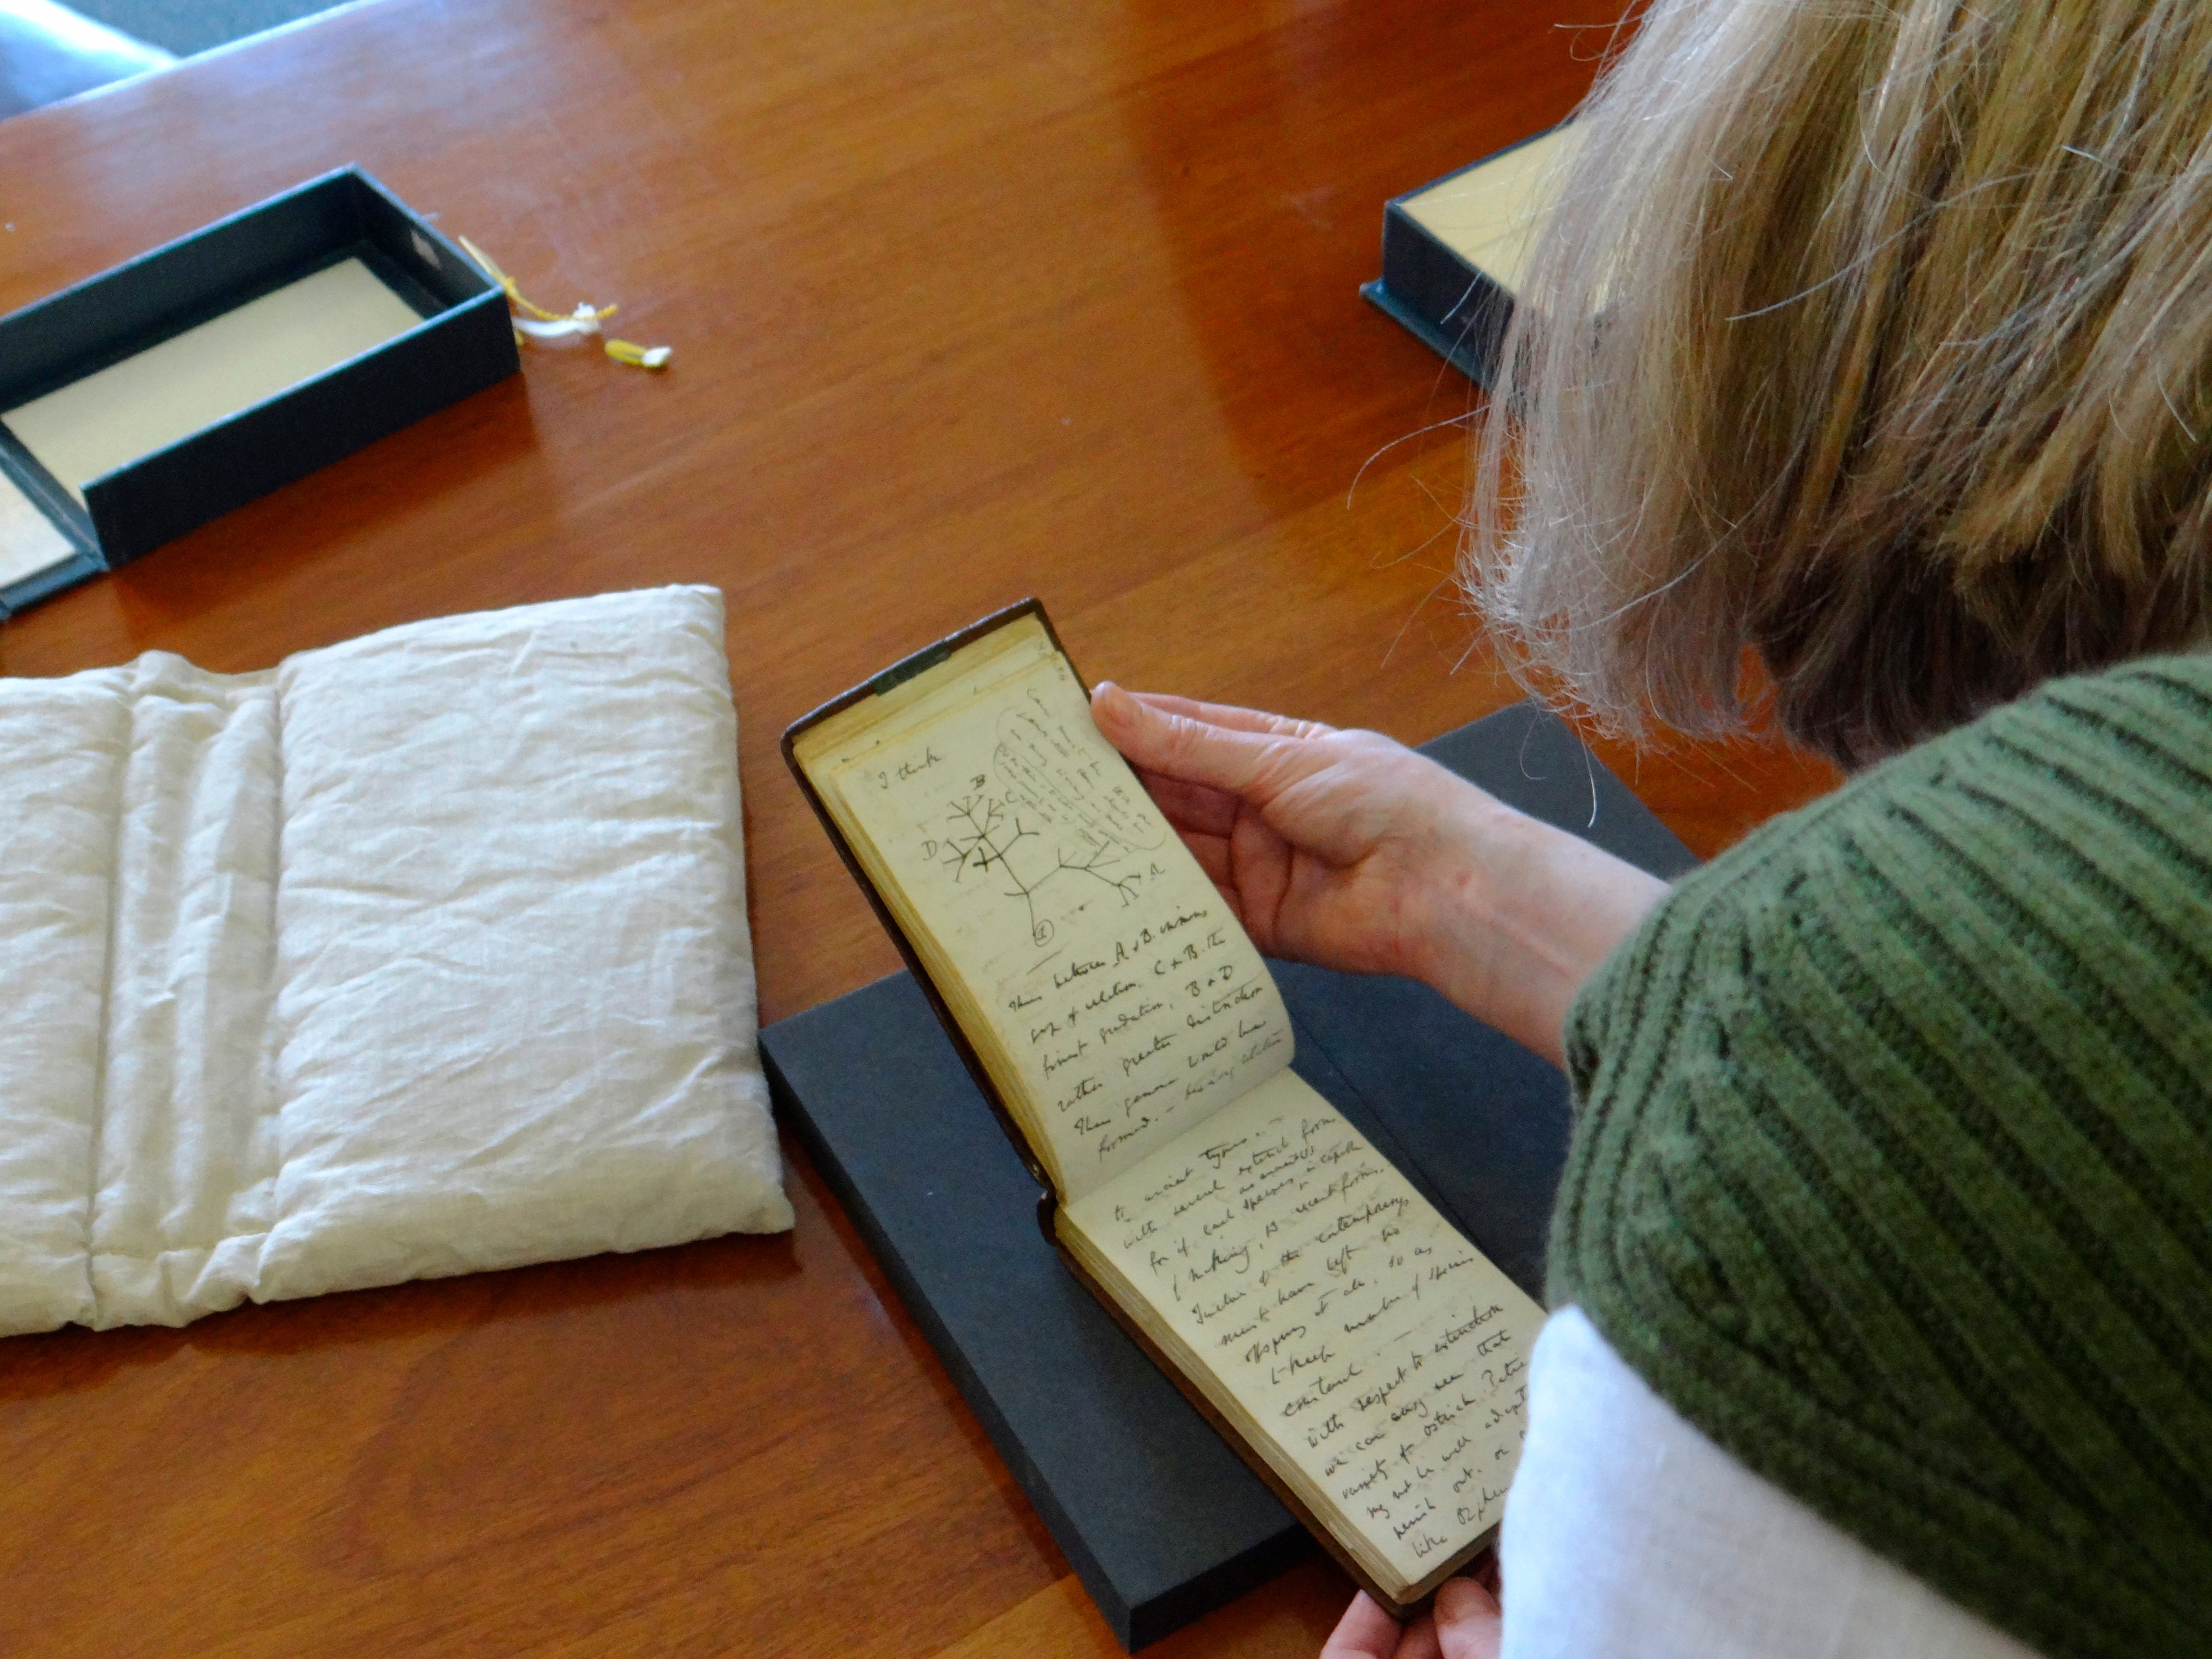 I think
B
C
D
A
1
Thus between A & B. immens
gap of relation. C & B. the
finest gradation, B & D
rather greater distinction
Thus genera would be
formed. — bearing relation
to ancient types. —
with several extinct forms
for if each species as ancient (1)
is capable
of making, 13 recent forms. —
Twelve of the contemporarys
must have left no
offspring at all, so as
to keep number of species
constant. —
With respect to extinction
we can easy see that
variety of ostrich, Petise
may not be well adapted
perish out, or
like Orpheus